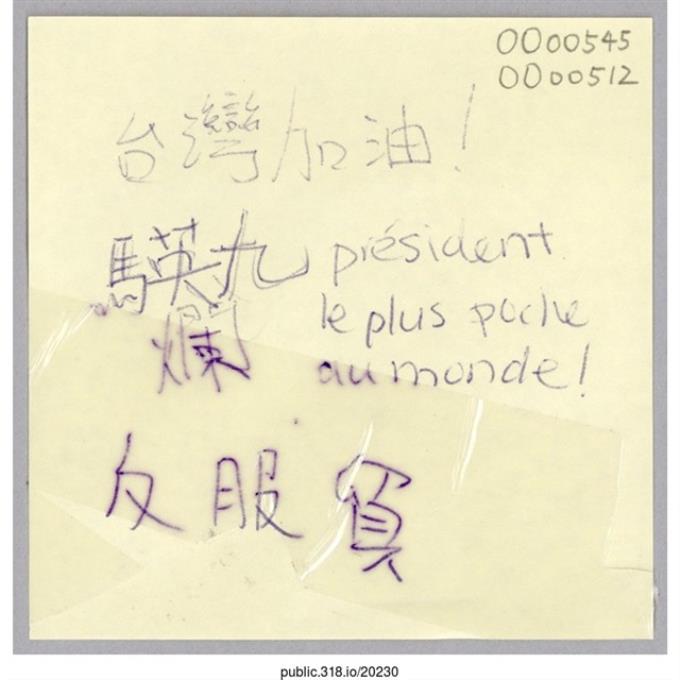 0000545
0000512
台灣加油！
馬英九 président
爛 le plus poche
au monde!
反服貿
public.318.io/20230